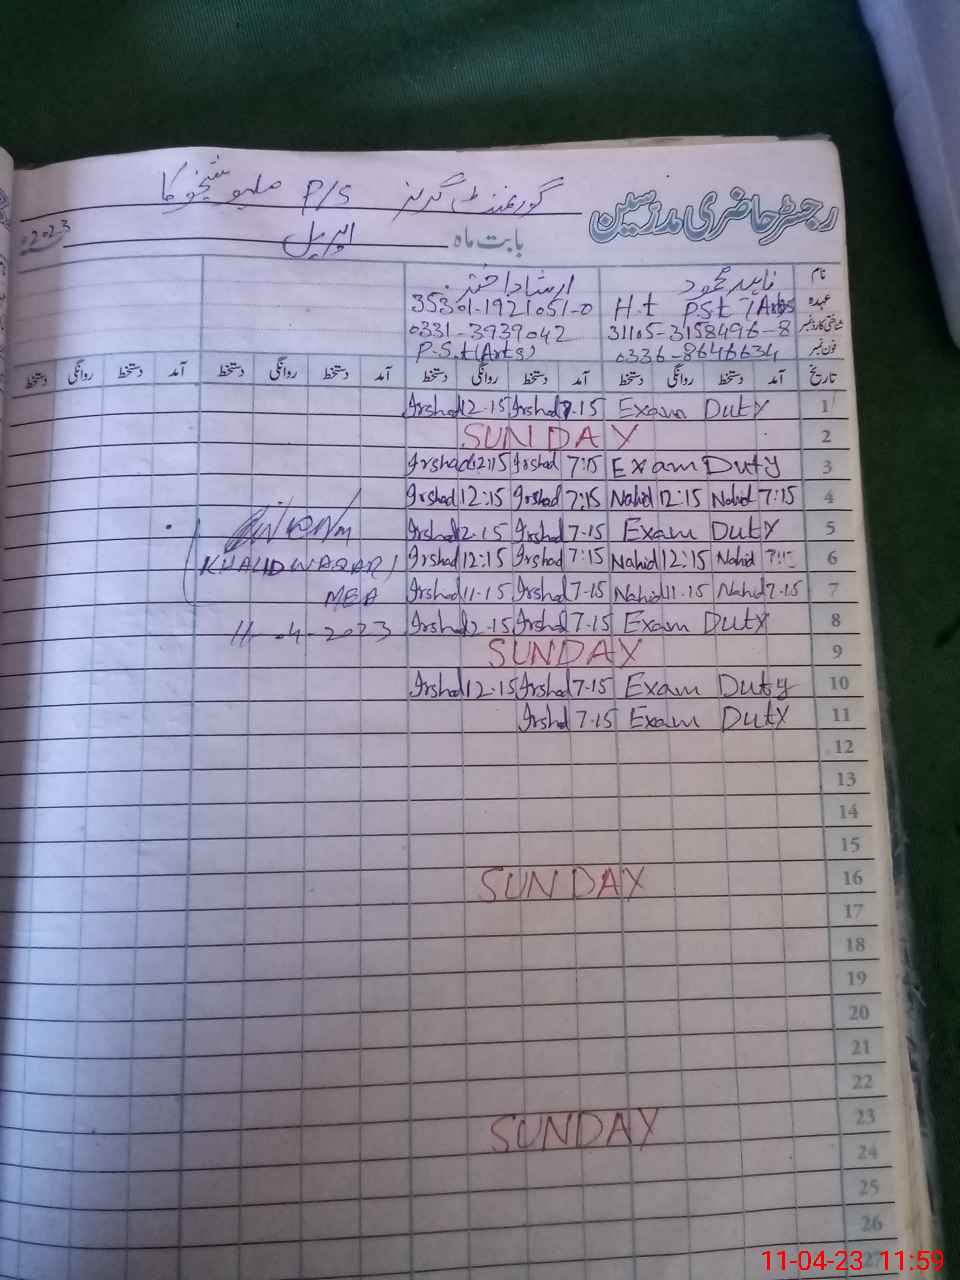 رجسٹر حاضری مدرسین گورنمنٹ گرلز P/S
بابت ماہ اپریل 2023
نام ناہید محمود ارشاد اختر
عہدہ H.t PSt 7 Arts 35301-1921051-0
شناختی کارڈ نمبر 31105-3158496-8 0331-3939042
فون نمبر 0336-8646634 P.S.t (Arts)
تاریخ آمد دستخط روانگی دستخط آمد دستخط روانگی دستخط آمد دستخط روانگی دستخط آمد دستخط روانگی دستخط
Irshad 12.15 Irshad 7.15 Exam Duty 1
SUNDAY 2
Irshad 12:15 Irshad 7:15 Exam Duty 3
Irshad 12:15 Irshad 7:15 Nahid 12:15 Nahid 7:15 4
Irshad 12.15 Irshad 7.15 Exam Duty 5
(KHALID WAQAR) Irshad 12:15 Irshad 7:15 Nahid 12:15 Nahid 6
MEA Irshad 11.15 Irshad 7.15 Nahid 11.15 Nahid 7.15 7
11-04-2023 Irshad 12.15 Irshad 7.15 Exam Duty 8
SUNDAY 9
Irshad 12.15 Irshad 7-15 Exam Duty 10
Irshad 7.15 Exam Duty 11
12
13
14
15
SUNDAY 16
17
18
19
20
21
22
SUNDAY 23
24
25
26
27
11-04-23 11:59